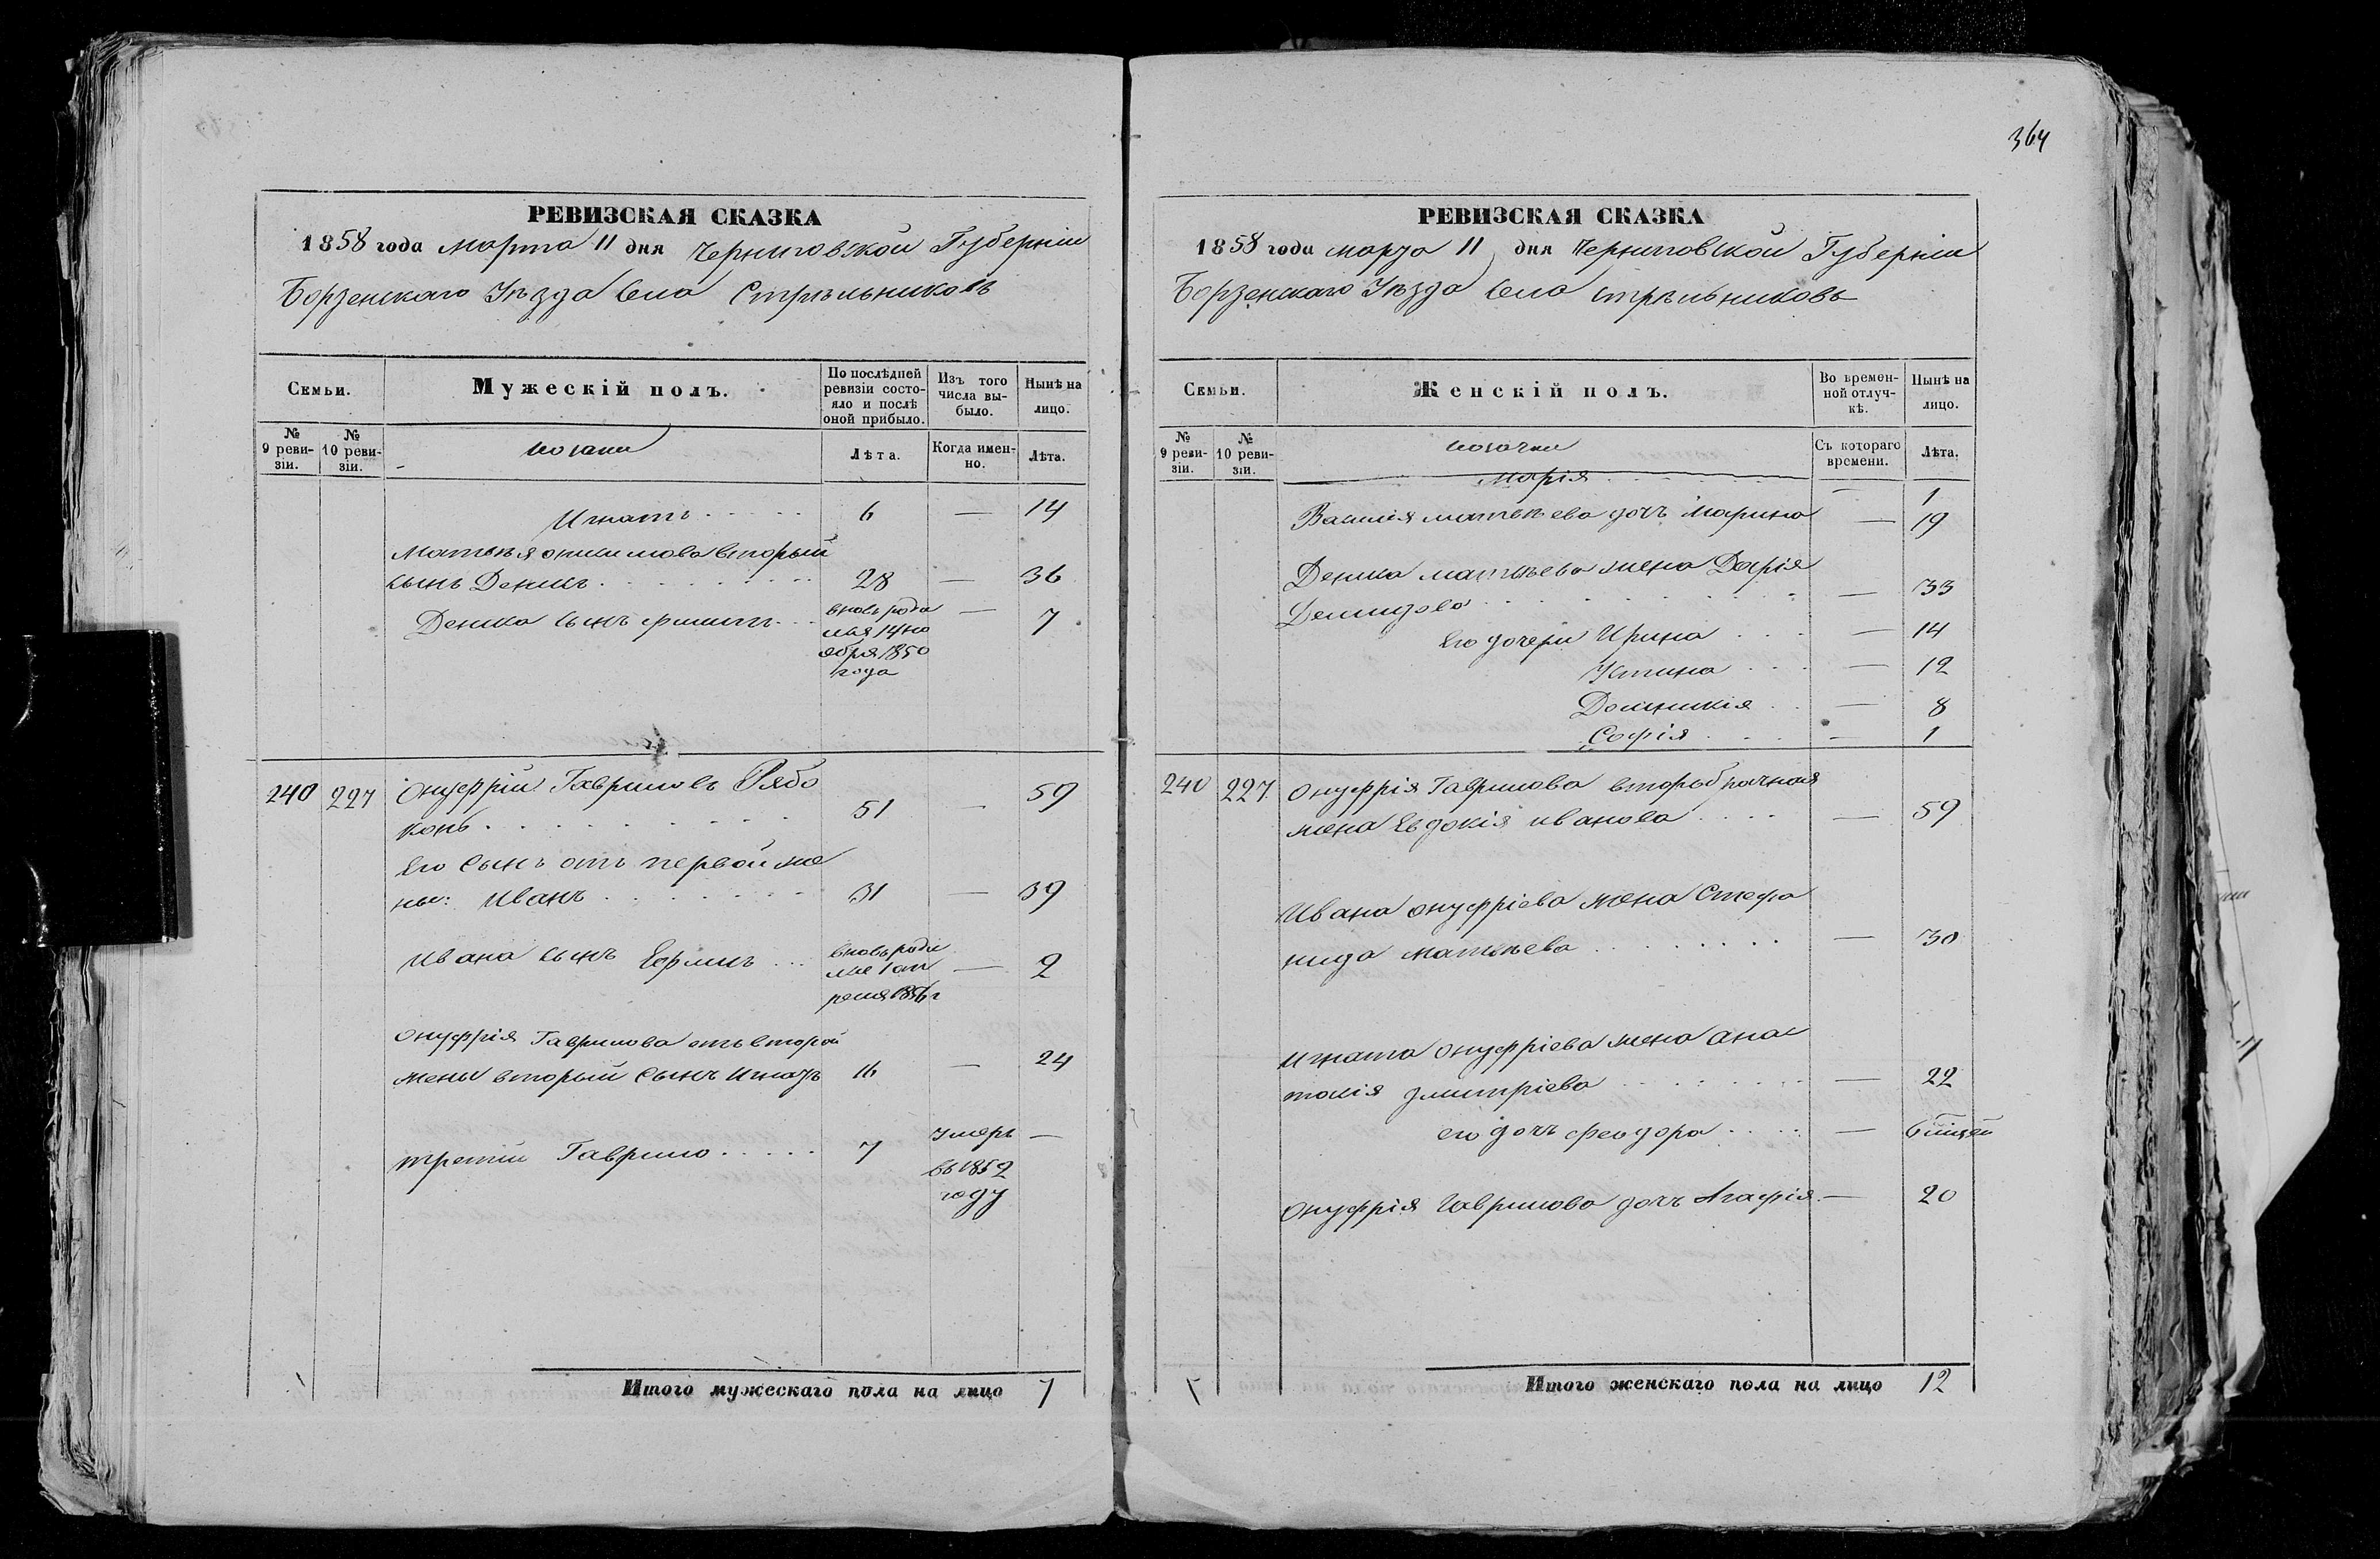 364
РЕВИЗСКАЯ СКАЗКА
1858 года Марта 11 дня Черниговской Губерніи
Борзенскаго Уѣзда Села Стрѣльниковъ
Семьи.
Мужескій полъ.
По послѣдней ревизіи состояло и послѣ оной прибыло.
Изъ того числа выбыло.
Нынѣ на лицо.
№ 9 ревизіи.
№ 10 ревизіи.
козаки
Лѣта.
Когда именно.
Лѣта.
Игнатъ . . . . . 6 — 14
Матвѣя Онисимова вторый
сынъ Денисъ . . . . . . . . . 28 — 36
Дениса сынъ Филипъ . . . вновь роди — 7
лся 14 но
ября 1850
года
240 227 Онуфрій Гавриловъ Рябо
конь . . . . . . . . . . 51 — 59
Его сынъ отъ первой же
ны: Иванъ . . . . . . . . 31 — 39
Ивана сынъ Ефимъ . . . вновь роди — 2
лся 1 ап
реля 1856 г
Онуфрія Гаврилова отъ второй
жены вторый сынъ Игнатъ 16 — 24
третій Гаврило . . . . . 7 умеръ —
въ 1852
году
Итого мужескаго пола на лицо 7
РЕВИЗСКАЯ СКАЗКА
1858 года марта 11 дня Черниговской Губерніи
Борзенскаго Уѣзда Села стрѣльниковъ
Семьи.
Женскій полъ.
Во временной отлучкѣ.
Нынѣ на лицо.
№ 9 ревизіи.
№ 10 ревизіи.
козачки
Съ котораго времени.
Лѣта.
Марія . . . . . — 1
Василія матвѣева дочъ Марина — 19
Дениса матвѣева жена Дарія
Демидова . . . . . . . . . — 33
Его дочери Ирина . . . — 14
Устина . . . — 12
Домникія . . — 8
Софія . . . . — 1
240 227 Онуфрія Гаврилова второбрачная
жена Евдокія иванова . . . . — 59
Ивана онуфріева жена Стефа
нида матвѣева . . . . . . . — 30
Игната Онуфріева жена Анас
тасія дмитріева . . . . . . . — 22
его дочъ феодора . . . . — 6 мцей
Онуфрія Гаврилова дочъ Агафія — 20
Итого женскаго пола на лицо 12